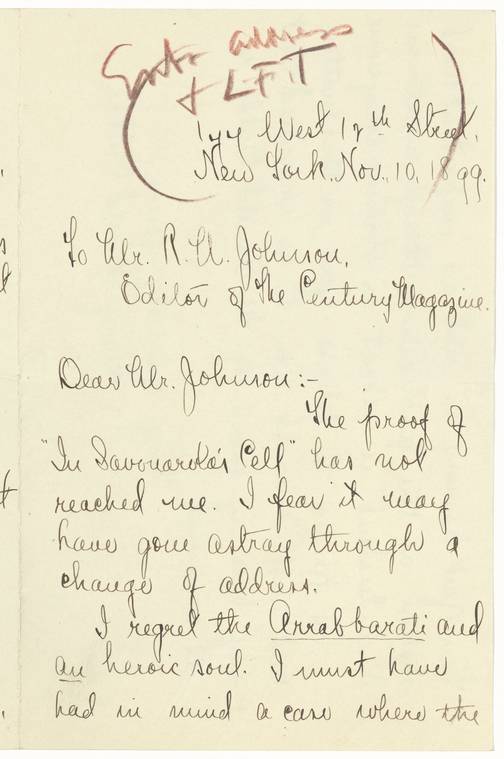 address
+ L.F.T
177 West 12th Street,
New York. Nov. 10, 1899.
To Mr. R. U. Johnson,
Editor of The Century Magazine.
Dear Mr. Johnson:-
The proof of
"In Savonarola's Cell" has not
reached me. I fear it may
have gone astray through a
change of address.
I regret the Arrabbarati and
an heroic soul. I must have
had in mind a case where the